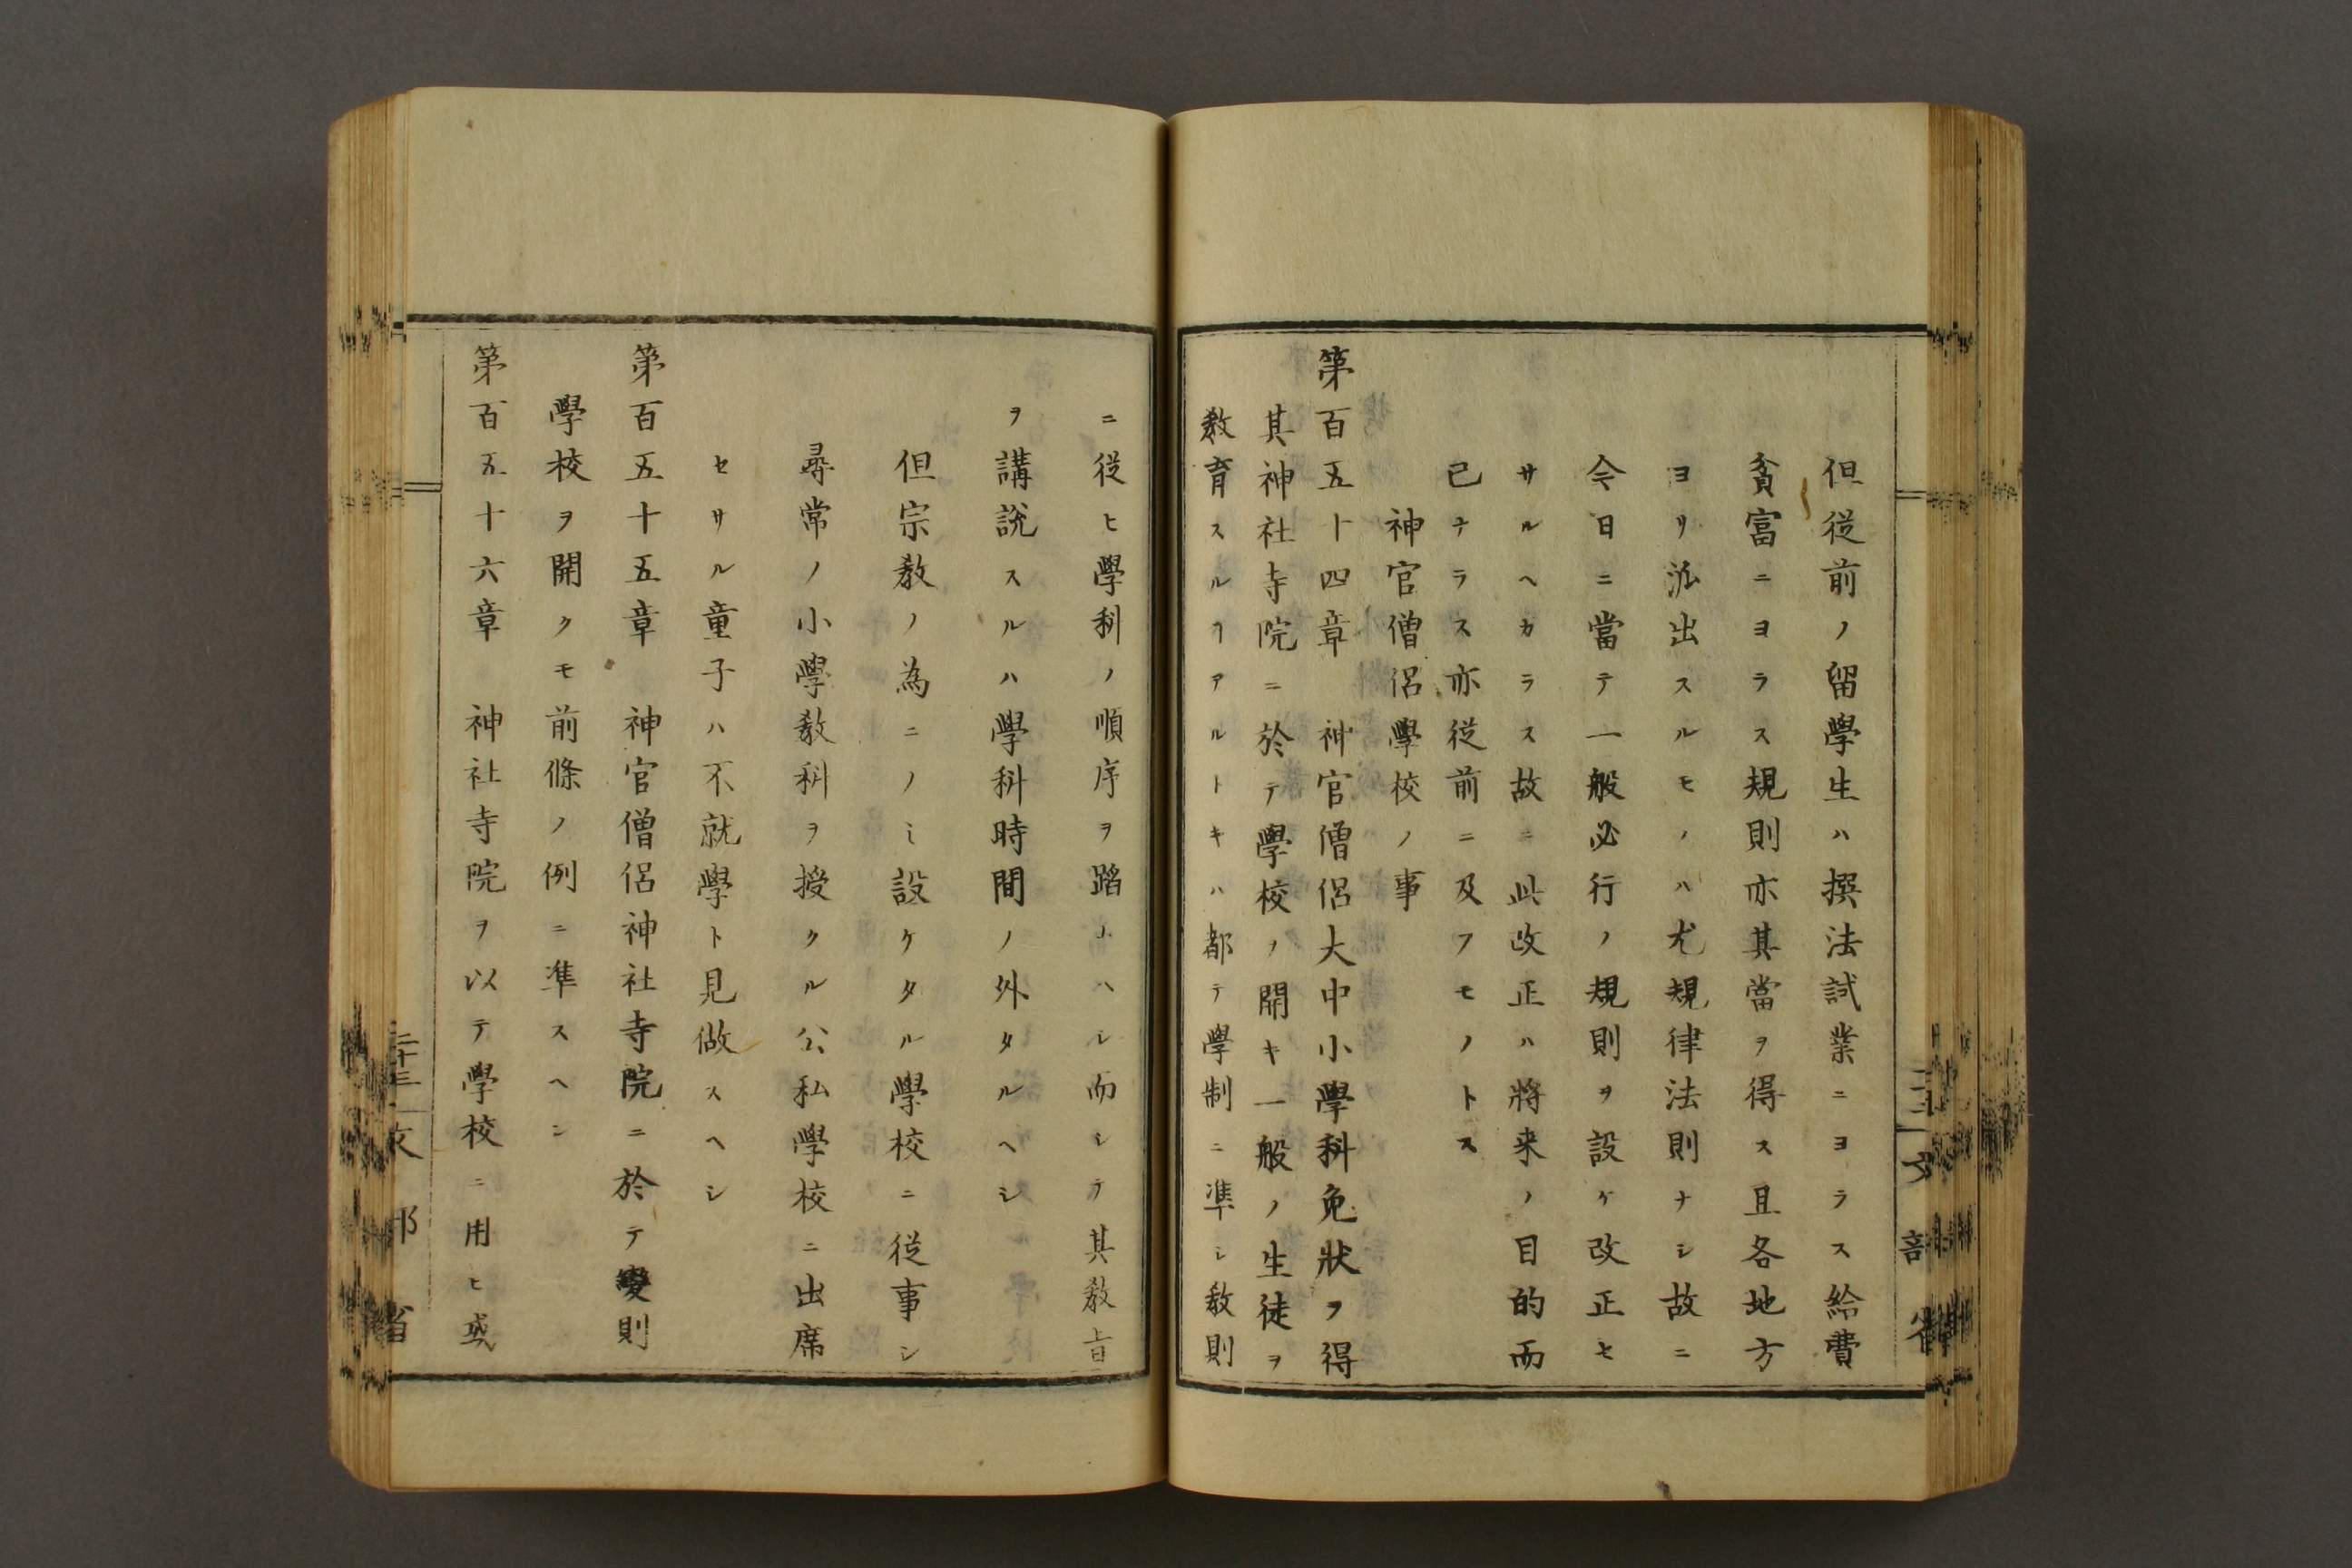 但従前ノ留學生ハ撰法試業ニヨラス給費
貧富ニヨラス規則亦其當ヲ得ス且各地方
ヨリ派出スルモノハ尤規律法則ナシ故ニ
今日ニ當テ一般必行ノ規則ヲ設ケ改正セ
サルヘカラス故ニ此改正ハ將来ノ目的而
已ナラス亦従前ニ及フモノトス
神官僧侶學校ノ事
第百五十四章 神官僧侶大中小學科免狀ヲ得
其神社寺院ニ於テ學校ノ開キ一般ノ生徒ヲ
教育スルヿアルトキハ都テ學制ニ準シ教則
ニ従ヒ學科ノ順序ヲ蹈ムヘシ而シテ其教旨
ヲ講說スルハ學科時間ノ外タルヘシ
但宗教ノ為ニノミ設ケタル學校ニ従事シ
尋常ノ小學教科ヲ授クル公私學校ニ出席
セサル童子ハ不就學ト見做スヘシ
第百五十五章 神官僧侶神社寺院ニ於テ變則
學校ヲ開クモ前條ノ例ニ準スヘシ
第百五十六章 神社寺院ヲ以テ學校ニ用ヒ或
文部省